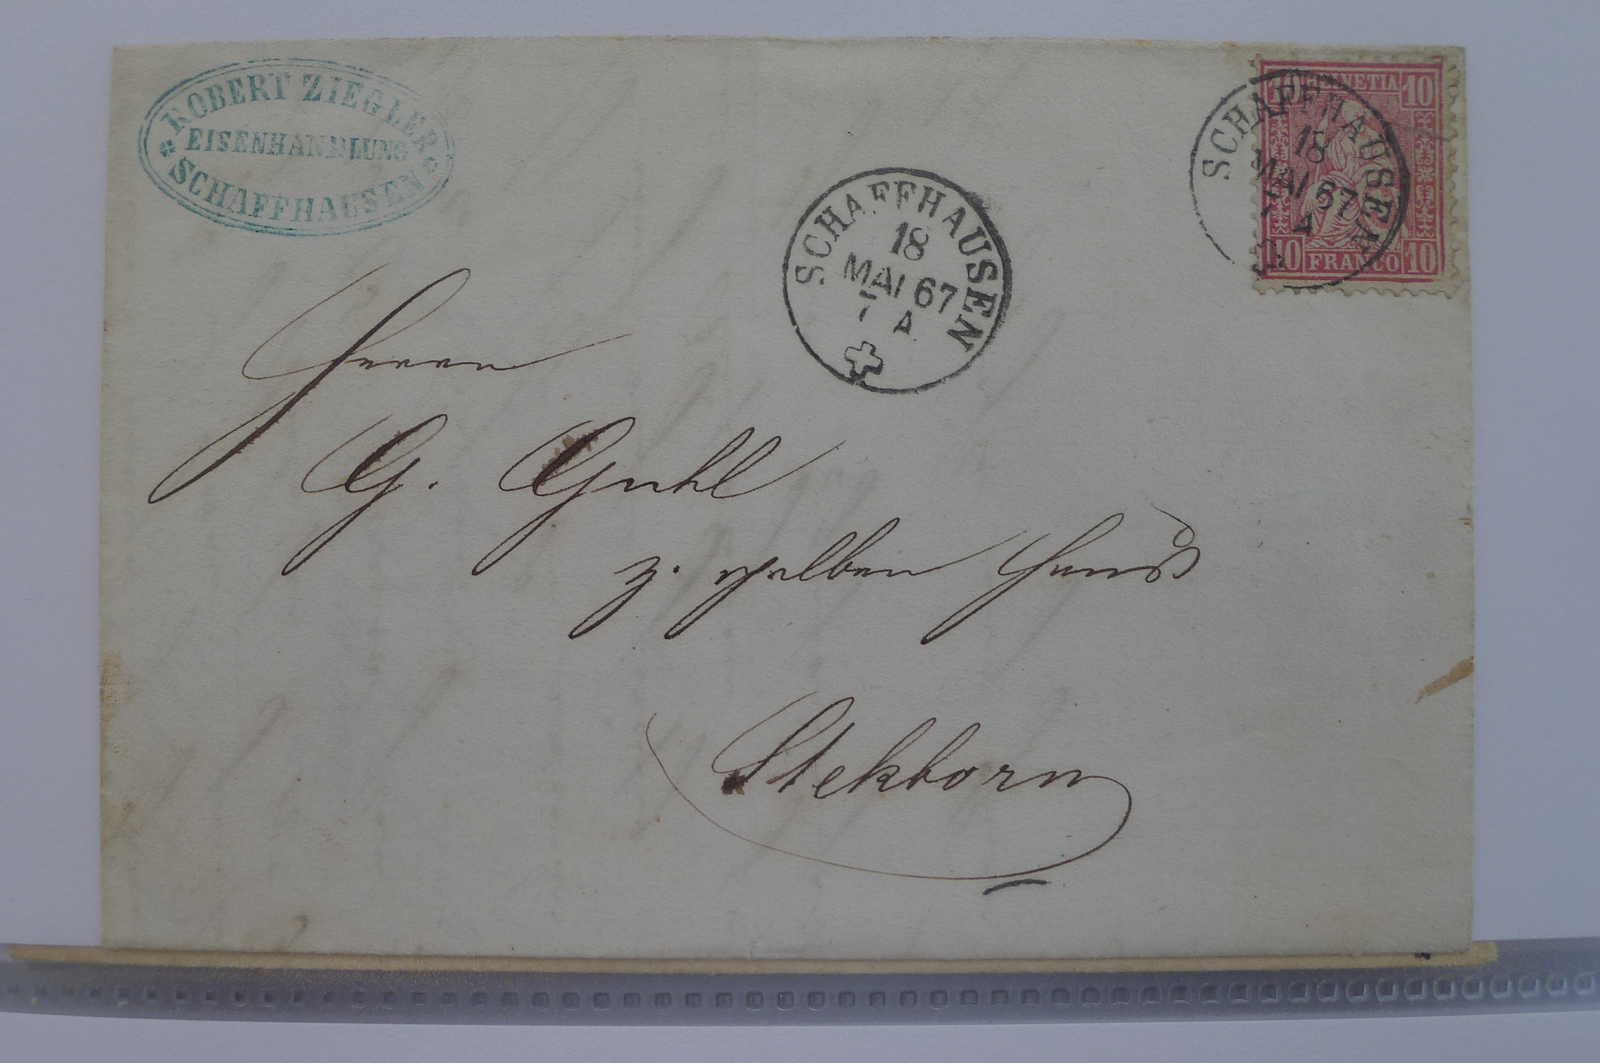 ROBERT ZIEGLER
EISENHANDLUNG
SCHAFFHAUSEN
SCHAFFHAUSEN
18
MAI 67
7 A
10 HELVETIA 10
10 FRANCO 10
SCHAFFHAUSEN
18
MAI 67
7 A
Herrn
G. Guhl
z. gelben Haus
Stekborn